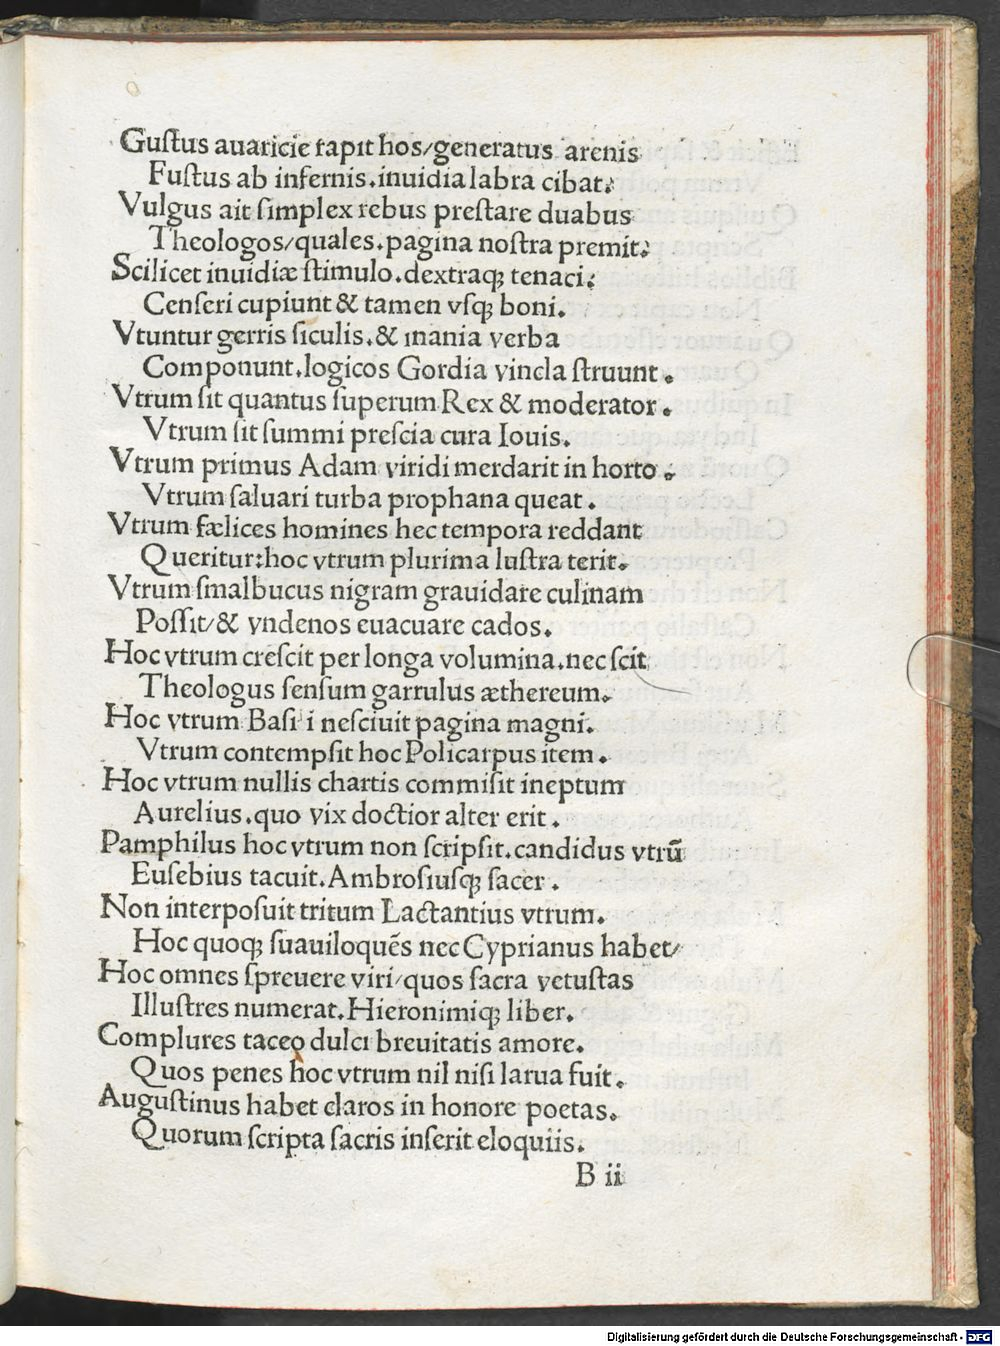 Guſtus auaricie rapit hos/generatus arenis
Fuſtus ab infernis.inuidia labra cibat.
Vulgus ait ſimplex rebus preſtare duabus
Theologos/quales.pagina noſtra premit.
Scilicet inuidiæ ſtimulo.dextraqꝫ tenaci.
Cenſeri cupiunt & tamen vſqꝫ boni.
Vtuntur gerris ſiculis.& inania verba
Componunt.logicos Gordia vincla ſtruunt.
Vtrum ſit quantus ſuperum Rex & moderator.
Vtrum ſit ſummi preſcia cura Iouis.
Vtrum primus Adam viridi merdarit in horto.
Vtrum ſaluari turba prophana queat.
Vtrum fælices homines hec tempora reddant
Queritur:hoc vtrum plurima luſtra terit.
Vtrum ſmalbucus nigram grauidare culinam
Poſſit/& vndenos euacuare cados.
Hoc vtrum creſcit per longa volumina.nec ſcit
Theologus ſenſum garrulus æthereum.
Hoc vtrum Baſi i neſciuit pagina magni.
Vtrum contempſit hoc Policarpus item.
Hoc vtrum nullis chartis commiſit ineptum
Aurelius.quo vix doctior alter erit.
Pamphilus hoc vtrum non ſcripſit.candidus vtrū
Euſebius tacuit.Ambroſiuſqꝫ ſacer.
Non interpoſuit tritum Lactantius vtrum.
Hoc quoqꝫ ſuauiloquēs nec Cyprianus habet/
Hoc omnes ſpreuere viri/quos ſacra vetuſtas
Illuſtres numerat.Hieronimiqꝫ liber.
Complures taceo dulci breuitatis amore.
Quos penes hoc vtrum nil niſi larua fuit.
Auguſtinus habet claros in honore poetas.
Quorum ſcripta ſacris inſerit eloquiis.
B ii
Digitalisierung gefördert durch die Deutsche Forschungsgemeinschaft - DFG